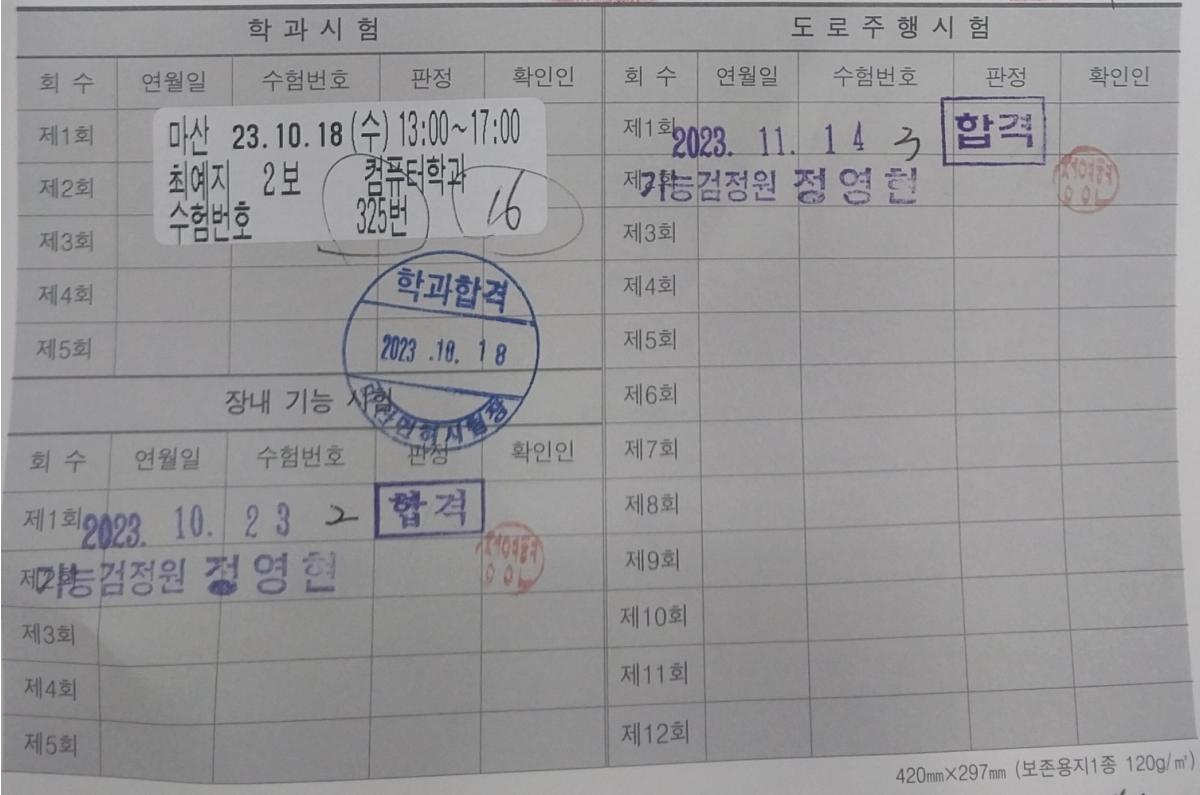 학과시험
회 수 연월일 수험번호 판정 확인인
제1회
제2회
제3회
제4회
제5회
마산 23.10.18(수) 13:00~17:00
최예지 2보 컴퓨터학과
수험번호 325번 16
학과합격
2023.10.18
장내 기능 시험
회 수 연월일 수험번호 판정 확인인
제1회 2023. 10. 23 2 합격
제2회 기능검정원 정영현
제3회
제4회
제5회
도로주행시험
회 수 연월일 수험번호 판정 확인인
제1회 2023. 11. 14 3 합격
기능검정원 정영현
제3회
제4회
제5회
제6회
제7회
제8회
제9회
제10회
제11회
제12회
420㎜×297㎜ (보존용지1종 120g/㎡)